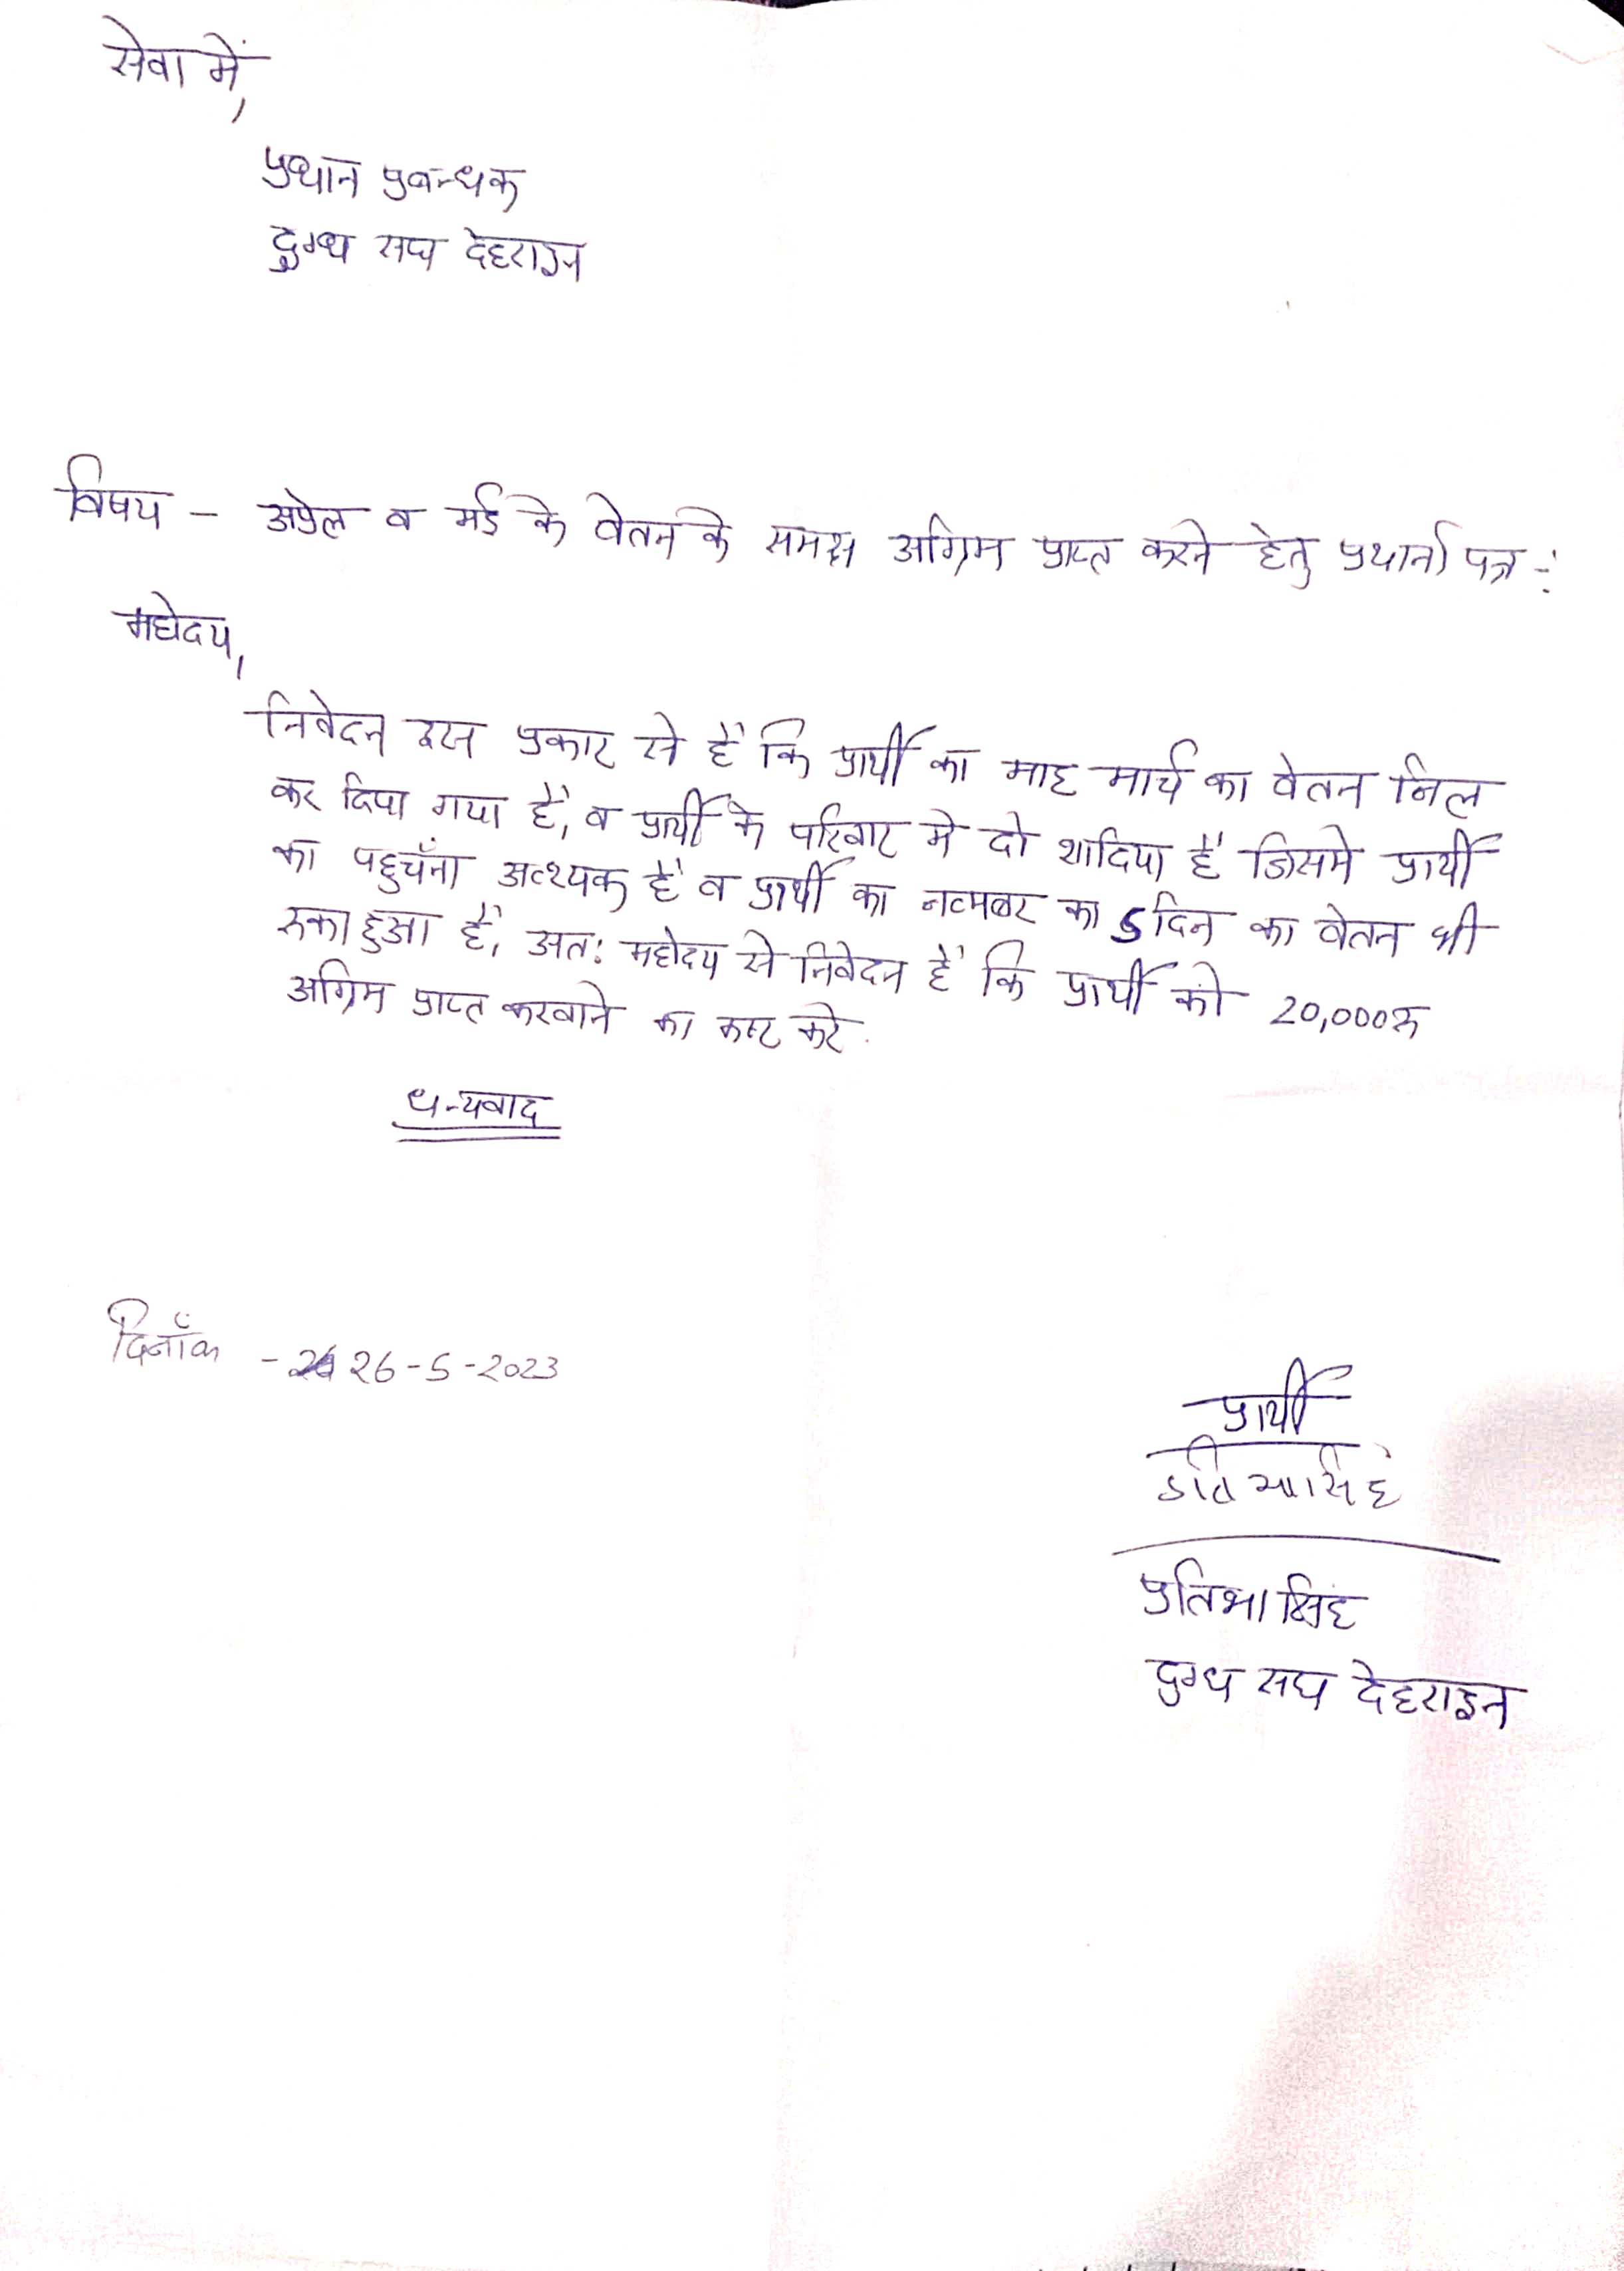 सेवा में,
प्रधान प्रबन्धक
दुग्ध सघ देहरादून
विषय - अप्रेल व मई के वेतन के समक्ष अग्रिम प्राप्त करने हेतु प्रथार्ना पत्र -:
महोदय,
निवेदन इस प्रकार से है कि प्रार्थी का माह मार्च का वेतन निल
कर दिया गया है, व प्रार्थी के परिवार मे दो शादिया है जिसमे प्रार्थी
का पहुचँना अवश्यक है व प्रार्थी का नवम्बर का 5 दिन का वेतन भी
रुका हुआ है, अत: महोदय से निवेदन है कि प्रार्थी को 20,000रु
अग्रिम प्राप्त करवाने का कष्ट करे.
धन्यवाद
दिनाँक - 26-5-2023
प्रार्थी
प्रतिभा सिंह
प्रतिभा सिंह
दुग्ध सघ देहरादून